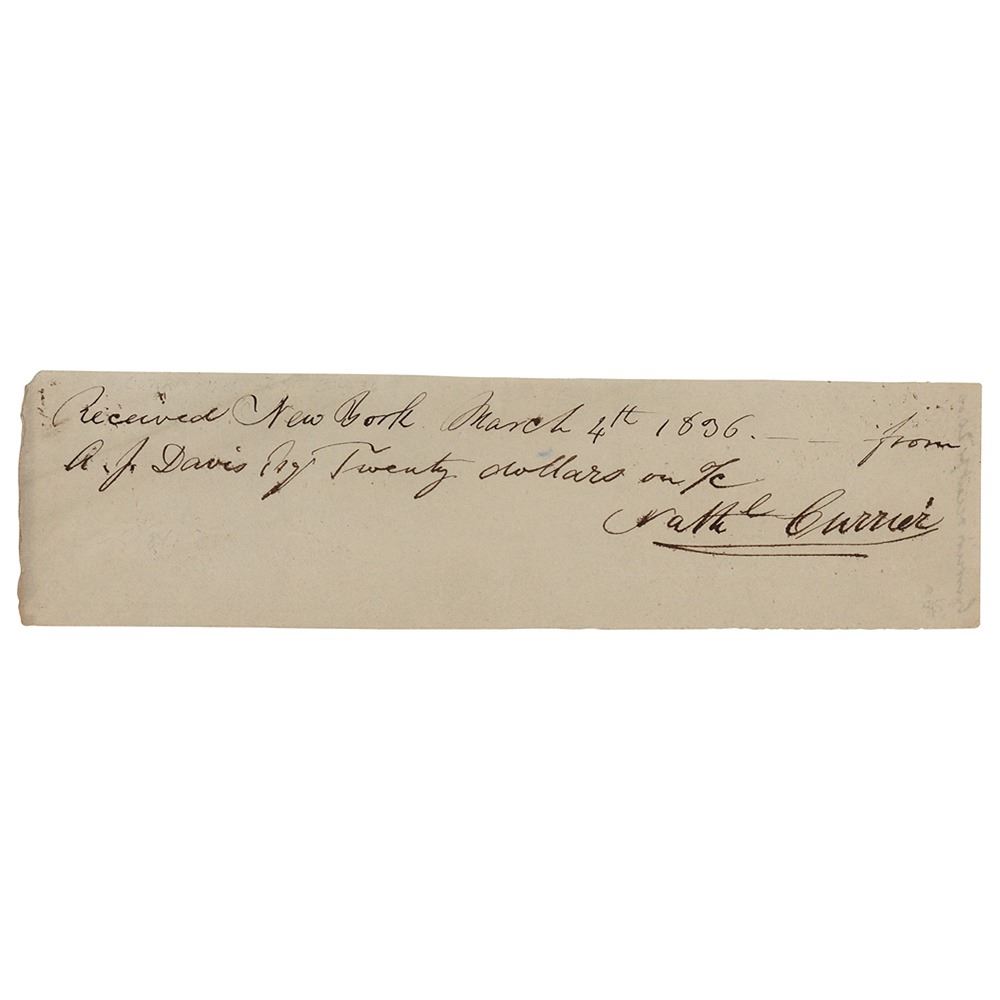 Received New York March 4th 1836. — — from
A. J. Davis Esq Twenty dollars on a/c
Nathl Currier